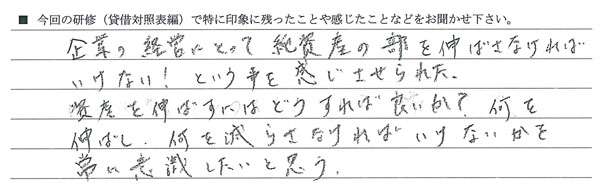 ■ 今回の研修（貸借対照表編）で特に印象に残ったことや感じたことなどをお聞かせ下さい。
企業の経営にとって純資産の部を伸ばさなければ
いけない！という事を感じさせられた。
資産を伸ばすにはどうすれば良いか？何を
伸ばし、何を減らさなければいけないかを
常に意識したいと思う。